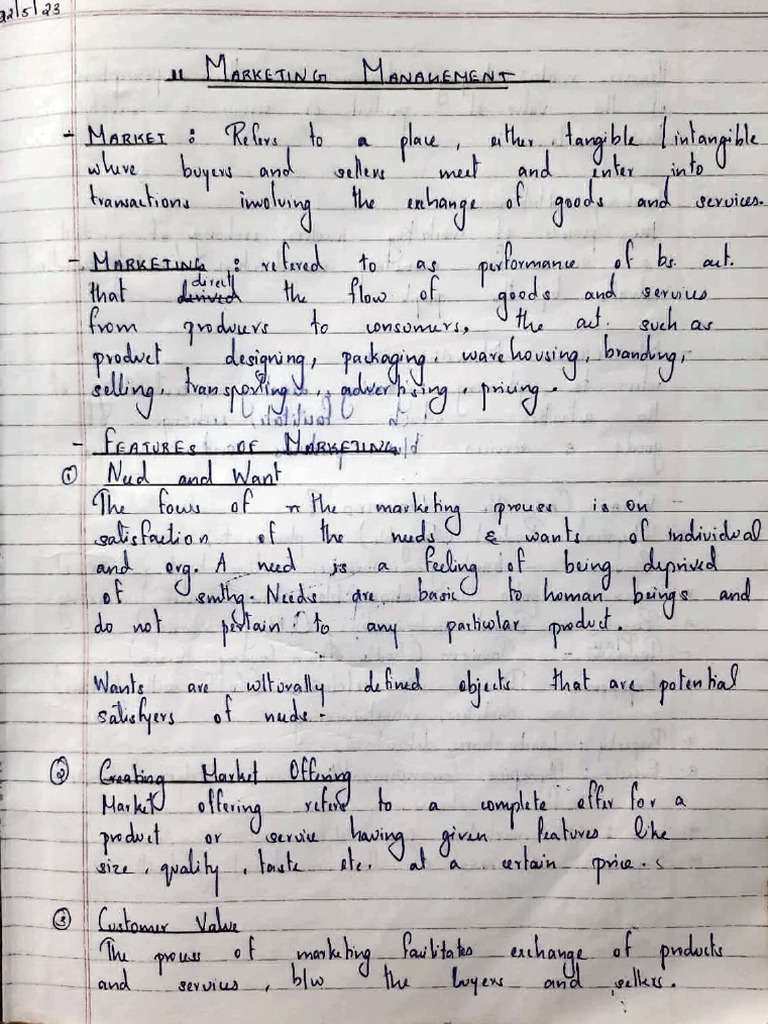 22/5/23
11 MARKETING MANAGEMENT
- MARKET : Refers to a place, either tangible / intangible
where buyers and sellers meet and enter into
transactions involving the exchange of goods and services.
- MARKETING : refered to as performance of bs. act.
direct
that derived the flow of goods and services
from producers to consumers, the act. such as
product designing, packaging, warehousing, branding,
selling, transporting, advertising, pricing.
- FEATURES OF MARKETING
① Need and Want
The focus of the marketing process is on
satisfaction of the needs & wants of individual
and org. A need is a feeling of being deprived
of smthg. Needs are basic to human beings and
do not pertain to any particular product.
Wants are culturally defined objects that are potential
satisfyers of needs.
② Creating Market Offering
Market offering refers to a complete offer for a
product or service having given features like
size, quality, taste etc. at a certain price.
③ Customer Value
The process of marketing facilitates exchange of products
and services, b/w the buyers and sellers.